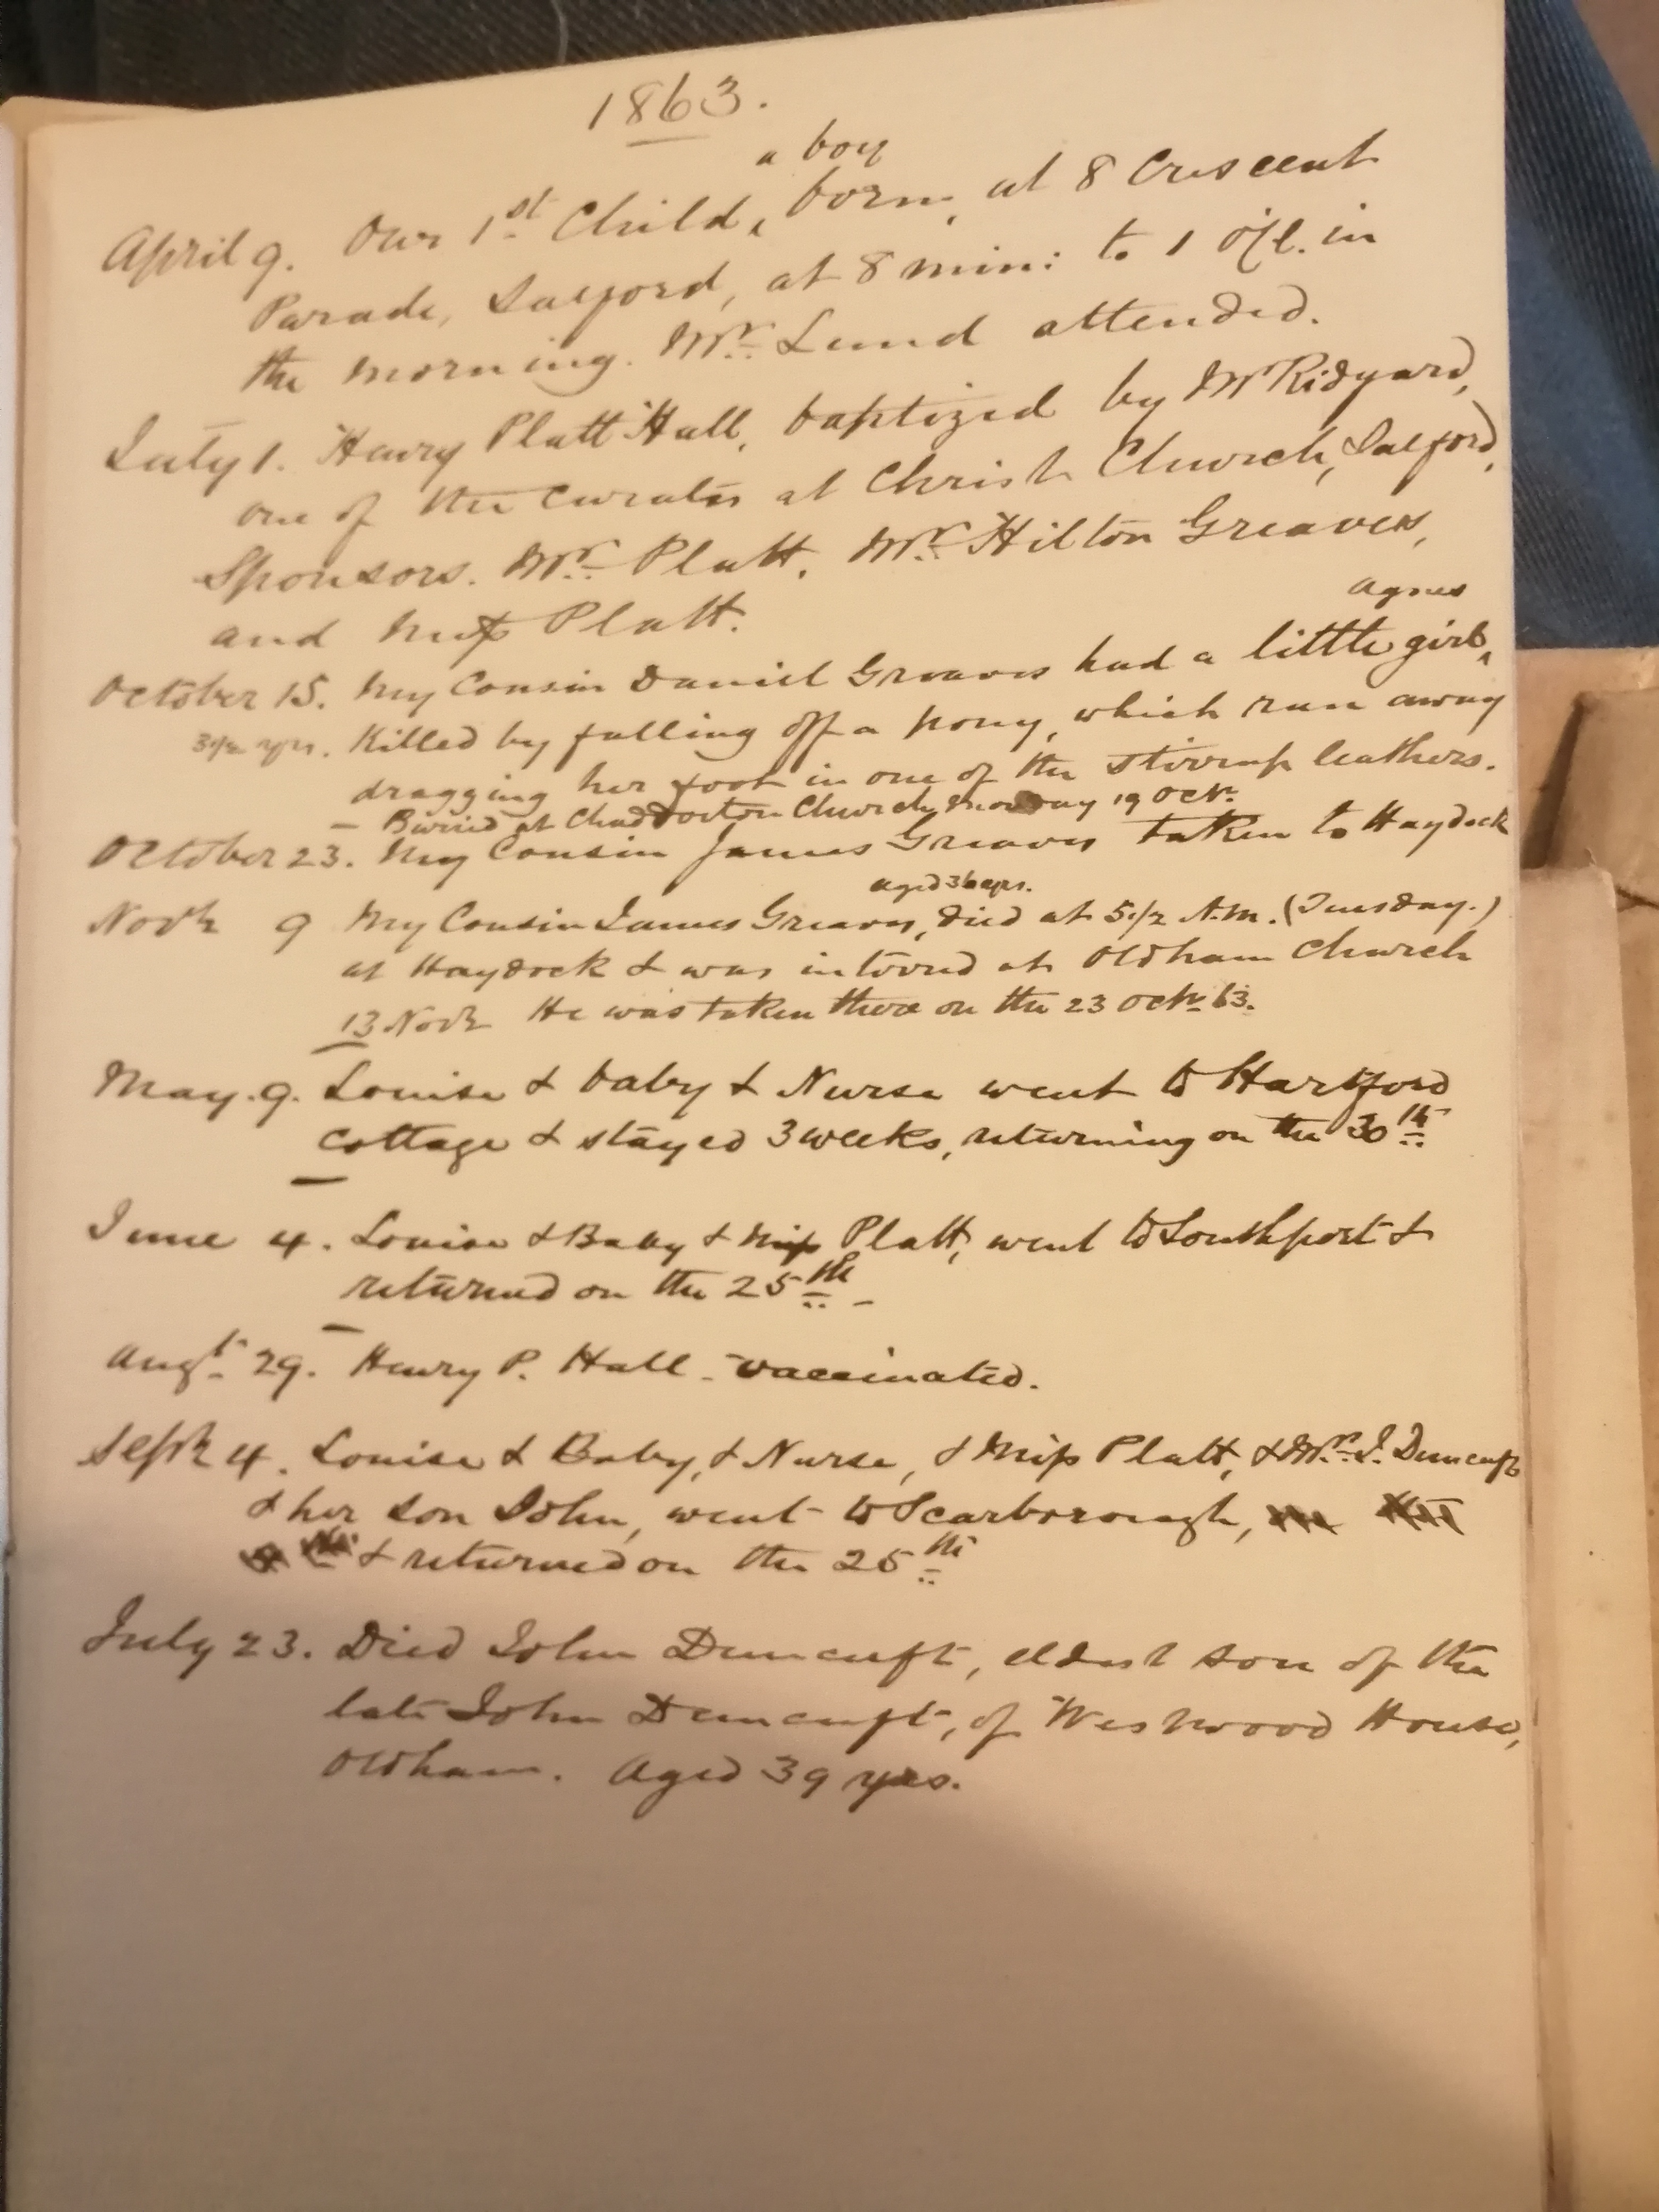 1863.
a boy
April 9. Our 1st Child, born, at 8 Crescent
Parade, Salford, at 8 min: to 1 o/Cl. in
the morning. Mr. Lund attended.
July 1. Henry Platt Hall, baptized by Mr Ridyard,
one of the curates at Christ Church, Salford,
Sponsors. Mr. Platt, Mr. Hilton Greaves,
and Miss Platt.
Agnes
October 15. My Cousin Daniel Greaves had a little girl,
3 1/2 yrs. Killed by falling off a pony, which run away
dragging her foot in one of the stirrup leathers.
— Buried at Chadderton Church, Monday 19 Octr.
October 23. My Cousin James Greaves taken to Haydock
aged 36 yrs.
Novr 9 My Cousin James Greaves, died at 5 1/2 A.M. (Tuesday.)
at Haydock & was interred at Oldham Church
13 Novr He was taken there on the 23 Octr. 63.
May. 9. Louisa & baby & Nurse went to Hartford
cottage & stayed 3 weeks, returning on the 30th
June 4. Louisa & Baby & Miss Platt, went to Southport &
returned on the 25th —
Augt. 29. Henry P. Hall - vaccinated.
Septr 4. Louisa & Baby, & Nurse, & Miss Platt, & Mrs. J. Duncuft
& her son John, went to Scarborough,
& returned on the 25th
July 23. Died John Duncuft, eldest son of the
late John Duncuft, of Westwood House,
Oldham. Aged 39 yrs.